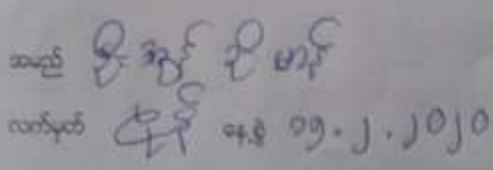 အမည် ဦး အွန် သို မာန်
လက်မှတ် နေ့စွဲ ၁၅.၂.၂၀၂၀